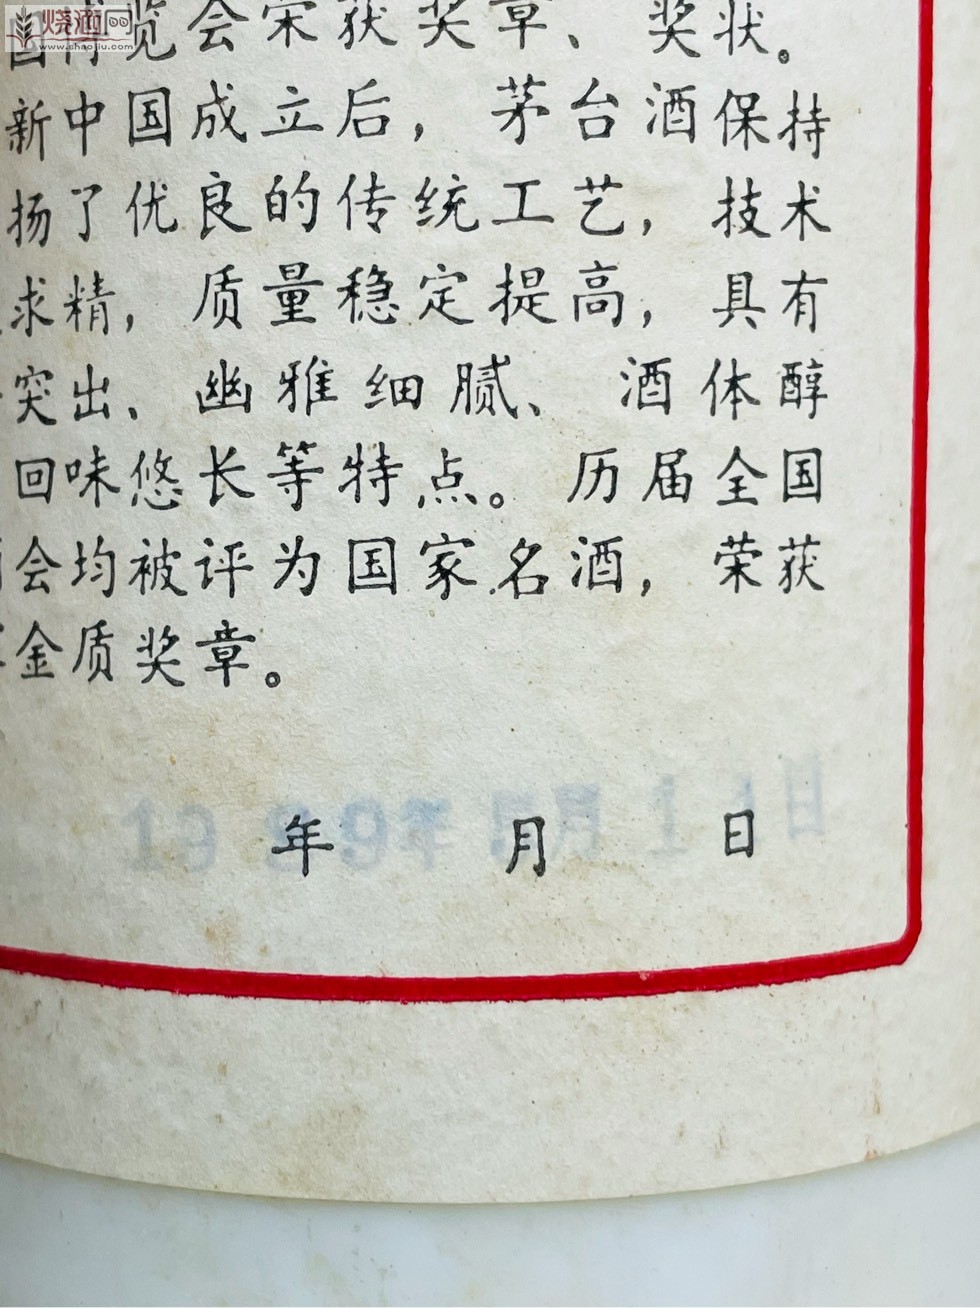 烧酒网
www.shaojiu.com
览会荣获奖章、奖状。
新中国成立后，茅台酒保持
扬了优良的传统工艺，技术
求精，质量稳定提高，具有
突出、幽雅细腻、酒体醇
回味悠长等特点。历届全国
会均被评为国家名酒，荣获
金质奖章。
年 月 日